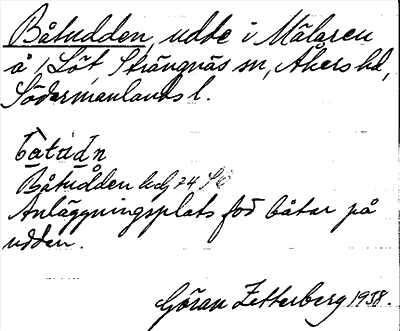 Båtudden, udde i Mälaren
å Löt, Strängnäs sn, Åkers hd,
Södermanlands l.
ba̱tùdn
Båtudden hd 24 Sö
Anläggningsplats för båtar på
udden.
Göran Zetterberg 1938.